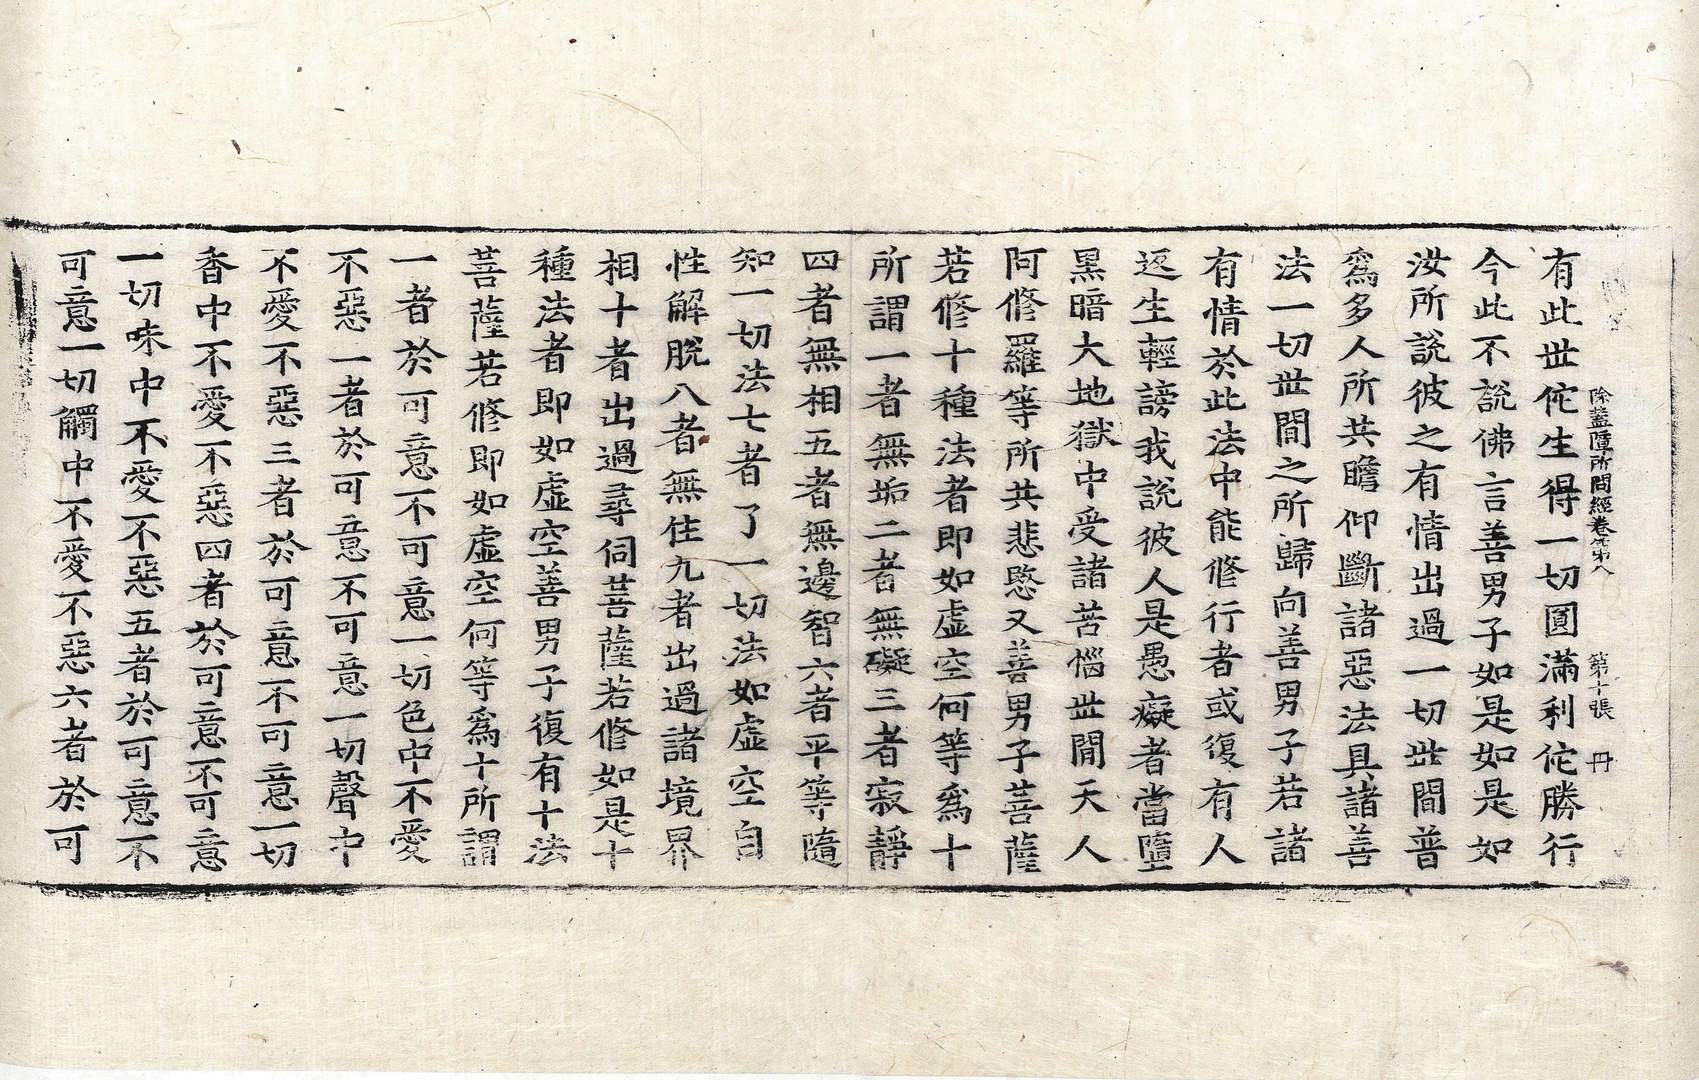 除蓋障所問經卷第八　第十張　冊
有此世佗生得一切圓滿利佗勝行
今此不說佛言善男子如是如是如
汝所說彼之有情出過一切世間普
爲多人所共瞻仰斷諸惡法具諸善
法一切世間之所歸向善男子若諸
有情於此法中能修行者或復有人
返生輕謗我說彼人是愚癡者當墮
黑暗大地獄中受諸苦惱世間天人
阿修羅等所共悲愍又善男子菩薩
若修十種法者即如虛空何等爲十
所謂一者無垢二者無礙三者寂靜
四者無相五者無邊智六者平等隨
知一切法七者了一切法如虛空自
性解脫八者無住九者出過諸境界
相十者出過尋伺菩薩若修如是十
種法者即如虛空善男子復有十法
菩薩若修即如虛空何等爲十所謂
一者於可意不可意一切色中不愛
不惡二者於可意不可意一切聲中
不愛不惡三者於可意不可意一切
香中不愛不惡四者於可意不可意
一切味中不愛不惡五者於可意不
可意一切觸中不愛不惡六者於可